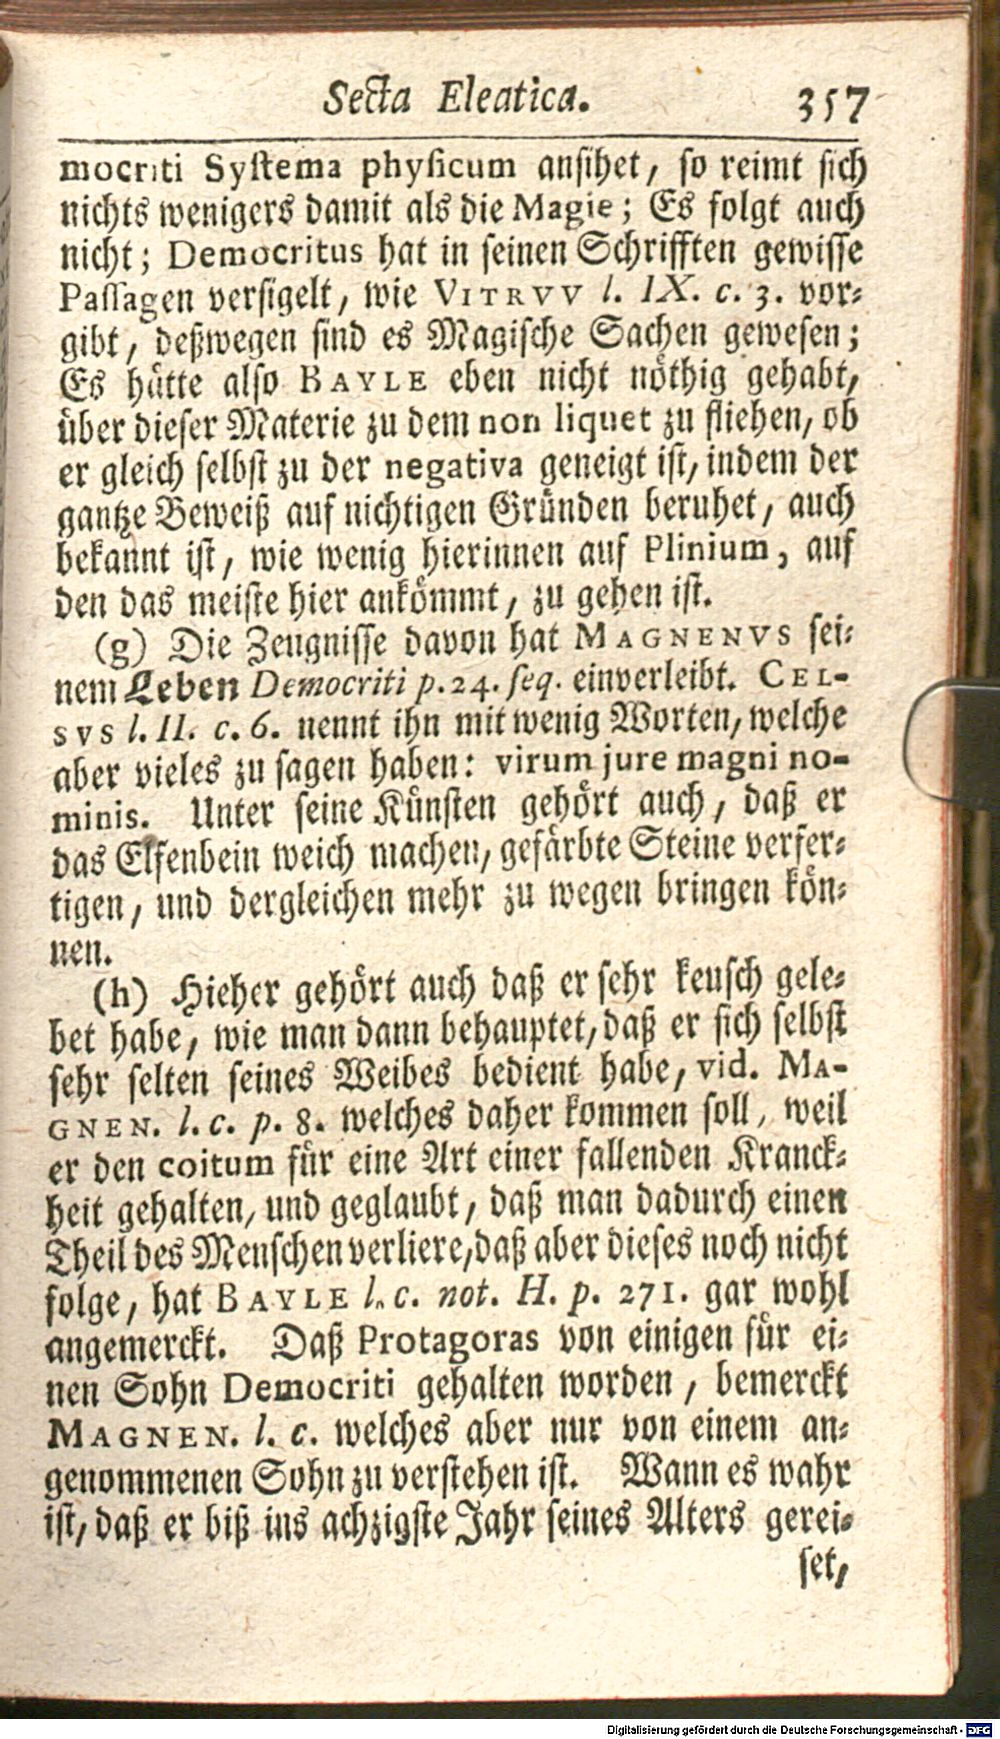 Secta Eleatica. 357
mocriti Systema physicum ansihet, so reimt sich
nichts wenigers damit als die Magie; Es folgt auch
nicht; Democritus hat in seinen Schrifften gewisse
Passagen versigelt, wie VITRVV l. IX. c. 3. vor-
gibt, deßwegen sind es Magische Sachen gewesen;
Es hätte also BAYLE eben nicht nöthig gehabt,
über dieser Materie zu dem non liquet zu fliehen, ob
er gleich selbst zu der negativa geneigt ist, indem der
gantze Beweiß auf nichtigen Gründen beruhet, auch
bekannt ist, wie wenig hierinnen auf Plinium, auf
den das meiste hier ankömmt, zu gehen ist.
(g) Die Zeugnisse davon hat MAGNENVS sei-
nem Leben Democriti p. 24. seq. einverleibt. CEL-
SVS l. II. c. 6. nennt ihn mit wenig Worten, welche
aber vieles zu sagen haben: virum jure magni no-
minis. Unter seine Künsten gehört auch, daß er
das Elfenbein weich machen, gefärbte Steine verfer-
tigen, und dergleichen mehr zu wegen bringen kön-
nen.
(h) Hieher gehört auch daß er sehr keusch gele-
bet habe, wie man dann behauptet, daß er sich selbst
sehr selten seines Weibes bedient habe, vid. MA-
GNEN. l. c. p. 8. welches daher kommen soll, weil
er den coitum für eine Art einer fallenden Kranck-
heit gehalten, und geglaubt, daß man dadurch einen
Theil des Menschen verliere, daß aber dieses noch nicht
folge, hat BAYLE l. c. not. H. p. 271. gar wohl
angemerckt. Daß Protagoras von einigen für ei-
nen Sohn Democriti gehalten worden, bemerckt
MAGNEN. l. c. welches aber nur von einem an-
genommenen Sohn zu verstehen ist. Wann es wahr
ist, daß er biß ins achzigste Jahr seines Alters gerei-
set,
Digitalisierung gefördert durch die Deutsche Forschungsgemeinschaft - DFG